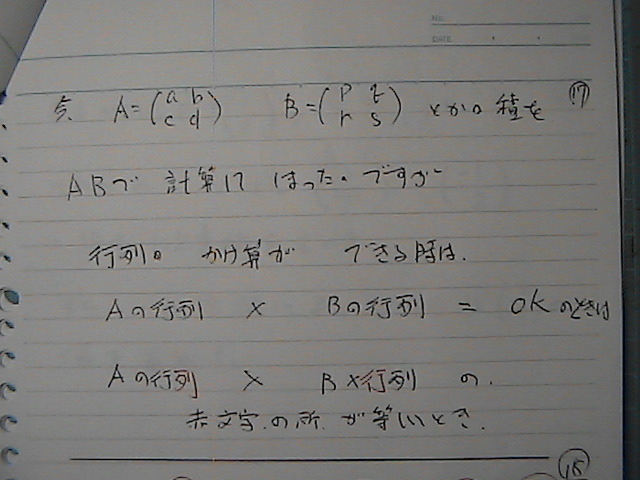 NO.
DATE
⑰
今 A=(a b c d) B=(p q r s) とかの積を
ABで 計算して ですが
行列の かけ算が できる時は.
Aの行列 × Bの行列 = OKのときは
Aの行列 × B×行列 の.
赤文字.の所.が等しいとき.
⑱